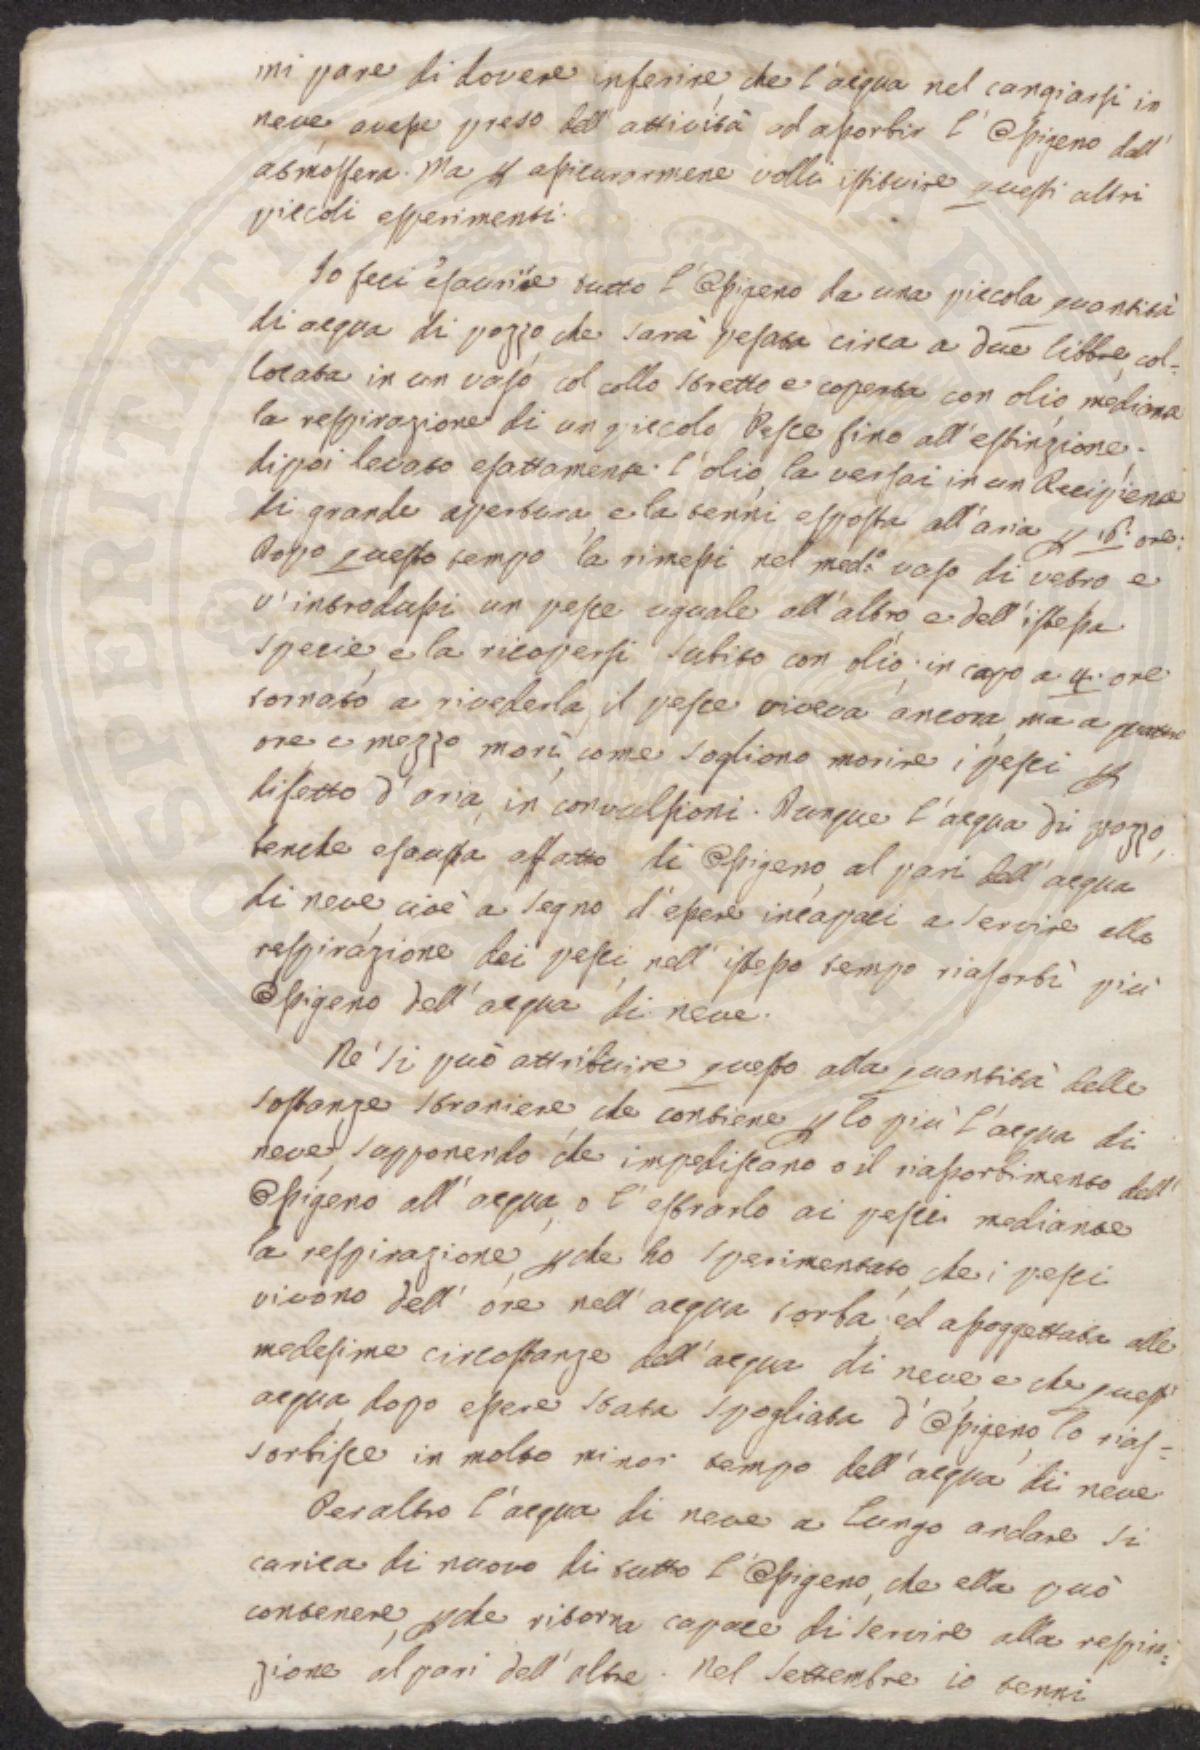 mi pare di dovere inferire, che l'acqua nel cangiarsi in
neve avesse preso dell'attività ad assorbir l'Ossigeno dall'
atmosfera. Ma p assicurarmene volli istituire questi altri
piccoli esperimenti.
Io feci esaurire tutto l'Ossigeno da una piccola quantità
di acqua di pozzo che sarà pesata circa a due libbre, col=
locata in un vaso col collo stretto e coperta con olio, mediante
la respirazione di un piccolo Pesce fino all'estinzione.
dipoi levato esattamente l'olio, la versai in un Recipiente
di grande apertura, e la tenni esposta all'aria p 16. ore.
Dopo questo tempo la rimessi nel med.º vaso di vetro e
v'introdussi un pesce uguale all'altro e dell'istessa
specie, e la ricopersi subito con olio; in capo a 4. ore
tornato a rivederla, il pesce viveva ancora, ma a quattro
ore e mezzo morì, come sogliono morire i pesci p
difetto d'aria, in convulsioni. Dunque l'acqua di pozzo,
benche esausta affatto di Ossigeno, al pari dell'acqua
di neve, cioè a segno d'essere incapaci a servire alla
respirazione dei pesci, nell'istesso tempo riassorbì più
Ossigeno dell'acqua di neve.
Nè si può attribuire questo alla quantità delle
sostanze straniere, che contiene p lo più l'acqua di
neve, supponendo che impediscano o il riassorbimento dell'
Ossigeno all'acqua, o l'estrarlo ai pesci mediante
la respirazione, pche ho sperimentato, che i pesci
vivono dell'ore nell'acqua torba, ed assoggettata alle
medesime circostanze dell'acqua di neve, e che quest'
acqua, dopo essere stata spogliata d'Ossigeno, lo rias=
sorbisce in molto minor tempo dell'acqua di neve.
Peraltro l'acqua di neve a lungo andare si
carica di nuovo di tutto l'Ossigeno, che ella può
contenere, pche ritorna capace di servire alla respira=
zione al pari dell'altre. Nel Settembre io tenni